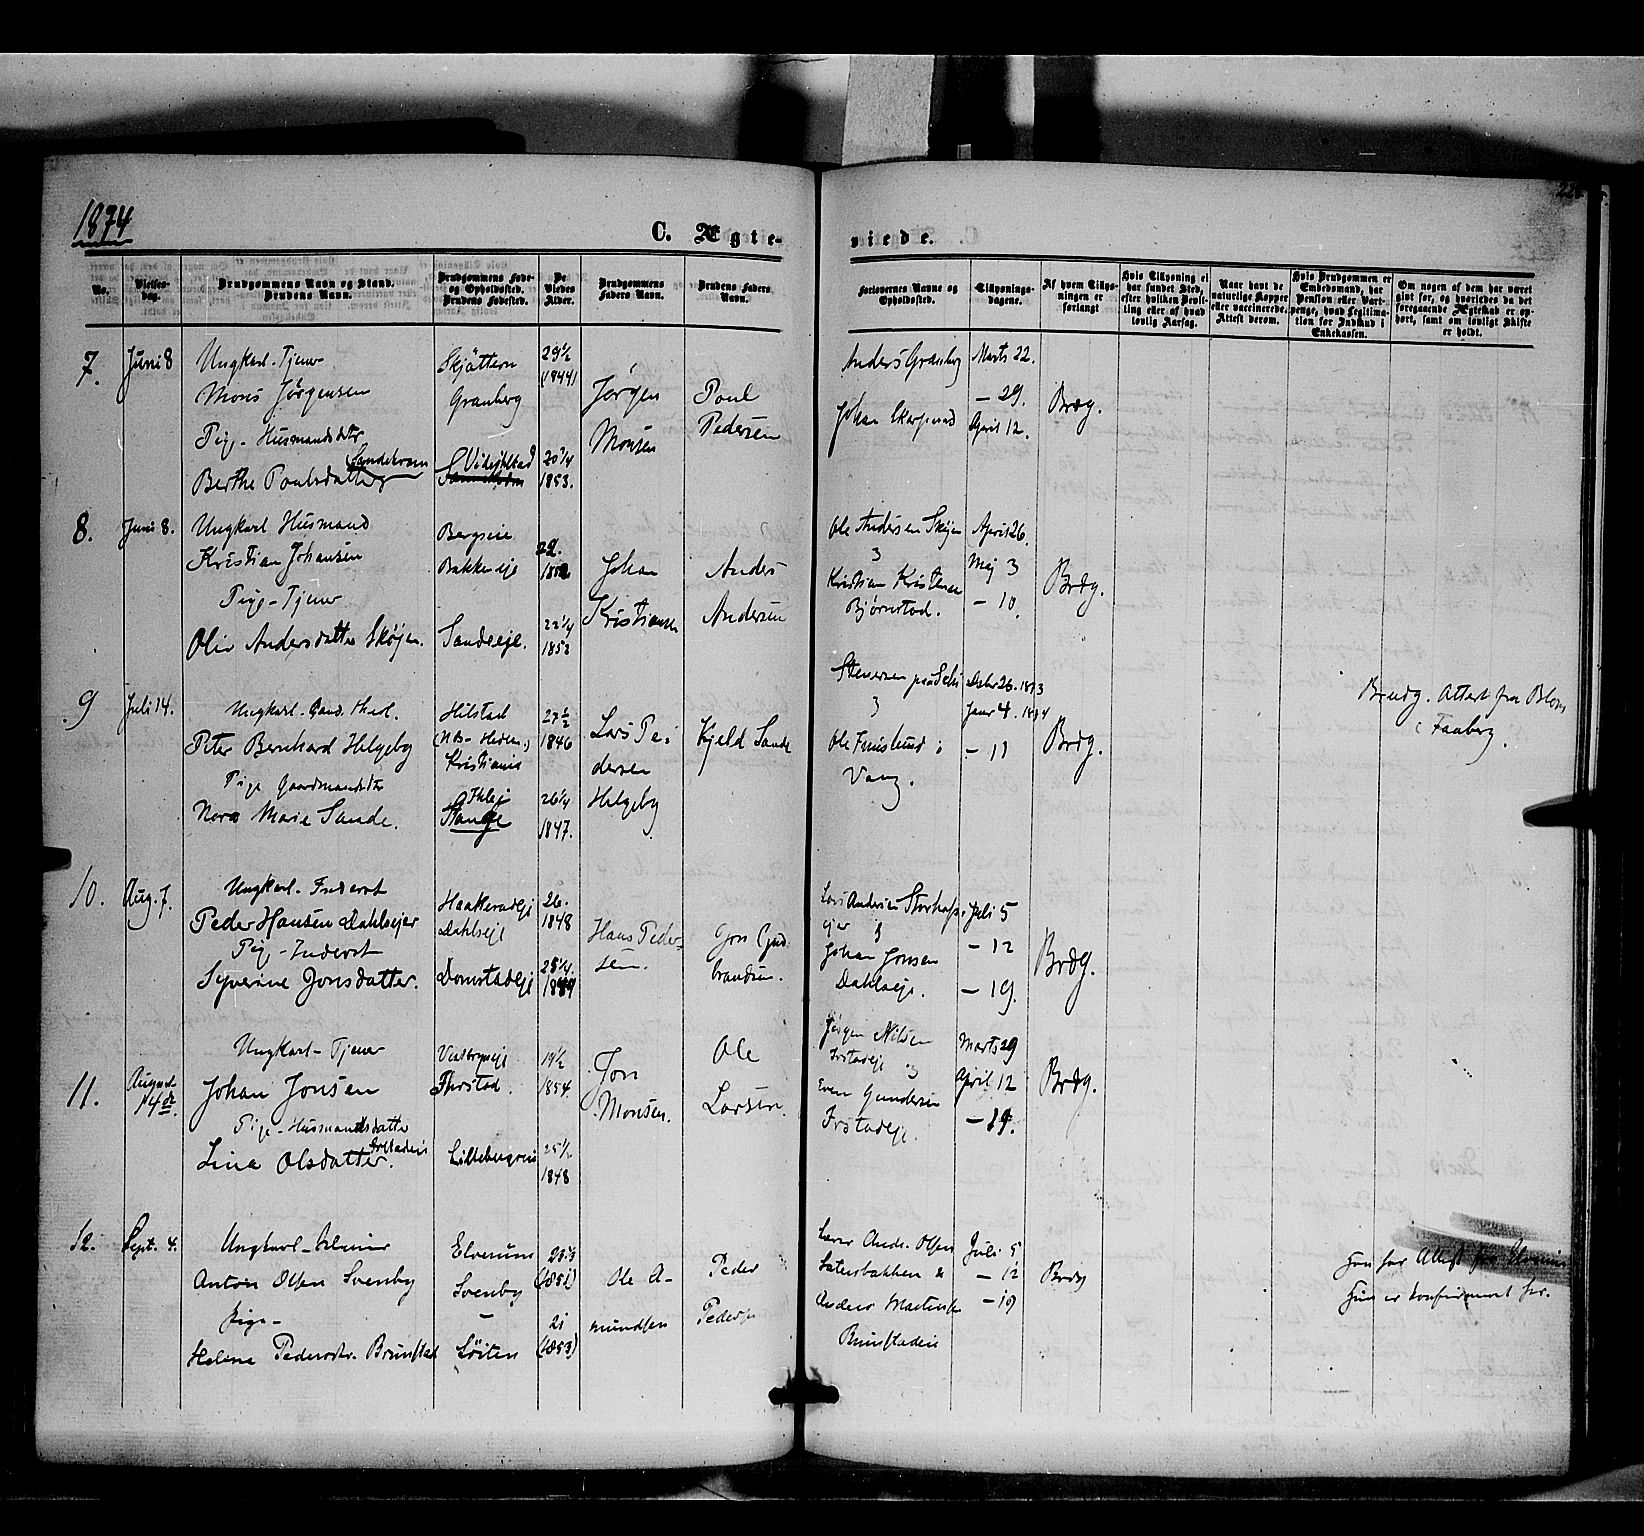 1874
C. Ægte-
viede.
No.
Vielses-
dag.
Brudgommens Navn og Stand.
Brudens Navn.
Brudgommens Føde-
og Opholdssted.
Brudens Fødested.
De
Viedes
Alder.
Brudgommens
Faders Navn.
Brudens Faders
Navn.
Forlovernes Navne og
Opholdssted.
Tillysnings-
dagene.
Af hvem Tillys-
ningen er
forlangt
Hvis Tillysning ei
har fundet Sted,
efter hvilken Bevil-
ling eller af hvad
lovlig Aarsag.
Naar havt de
naturlige Kopper
eller vaccinerede.
Attest derom.
Hvis Brudgommen er
Embedsmand, har
Pension eller Vart-
penge, hvad Legitima-
tion for Indskud i
Enkekassen.
Om nogen af dem har været
gift før, og hvorledes da det
foregaaende Ægteskab er op-
hørt, samt om lovligt Skifte
er holdt.
7.
Juni 8
Ungkarl. Tjener
Mons Jørgensen
Pige- Husmandsdtr
Berthe Poulsdatter
Granberg
29½
(1844)
20¼
1853.
Jørgen
Monsen
Poul
Pedersen
Anders Granberg
Johan
Marts 22.
— 29.
April 12.
Brdg.
8.
Juni 8.
Ungkarl Husmand
Kristian Johansen
Pige-Tjener
Oliv Andersdatter Skøjen.
Bakkeneje
Sandseje.
22.
22¼
1852
Johan
Kristiansen
Anders
Andersen
Ole Andersen Skøjen
&
Kristian Kristensen
Bjørnstad.
April 26.
Maj 3
— 10.
Brdg.
9
Juli 14.
Ungkarl. Cand. theol.
Peter Bernhard Helgeby
Pige Gaardmandsdtr
Nora Marie Sande.
Hilstad
Kristiania
Stange
27½
1846
26¼
1847.
Lars Pe-
dersen
Helgeby
Kjeld Sande
&
Ole i
Vang.
Decbr 26. 1873
Janr 4. 1874
— 11
Brdg.
Brudg. Attest fra
i Faaberg.
10.
Aug. 7.
Ungkarl- Inderst
Peder Hansen Dahlsejer
Pige- Inderst
Syverine Jonsdatter.
Dahlseje
Domstadeje
26.
1848
25¼
Hans Peder-
sen.
Jon Gud-
brandsen.
Lars Andersen
ejer &
Johan Jonsen
Dahlseje.
Juli 5
— 12
— 19.
Brdg.
11.
August
14de.
Ungkarl- Tjener
Johan Jonsen
Pige- Husmandsdatter
Lina Olsdatter.
19½
1854.
25½
1848
Jon
Monsen.
Ole
Larsen.
Jørgen Nilsen
&
Even Gundersen
Frstadeje.
Marts 29
April 12
— 19.
Brdg.
12.
Sept. 4.
Ungkarl-
Anton Olsen Svenby
Pige-
Helene Pedersdtr. Brunstad
Elverum
Svenby
—
Løiten
(1852)
21
(1853)
Ole A-
mundsen
Peder
Pedersen
Anders Martinsen
Brunstadeie
Juli 5
— 12
— 19
Brdg
Han har Attest fra
Hun er konfirmeret her.